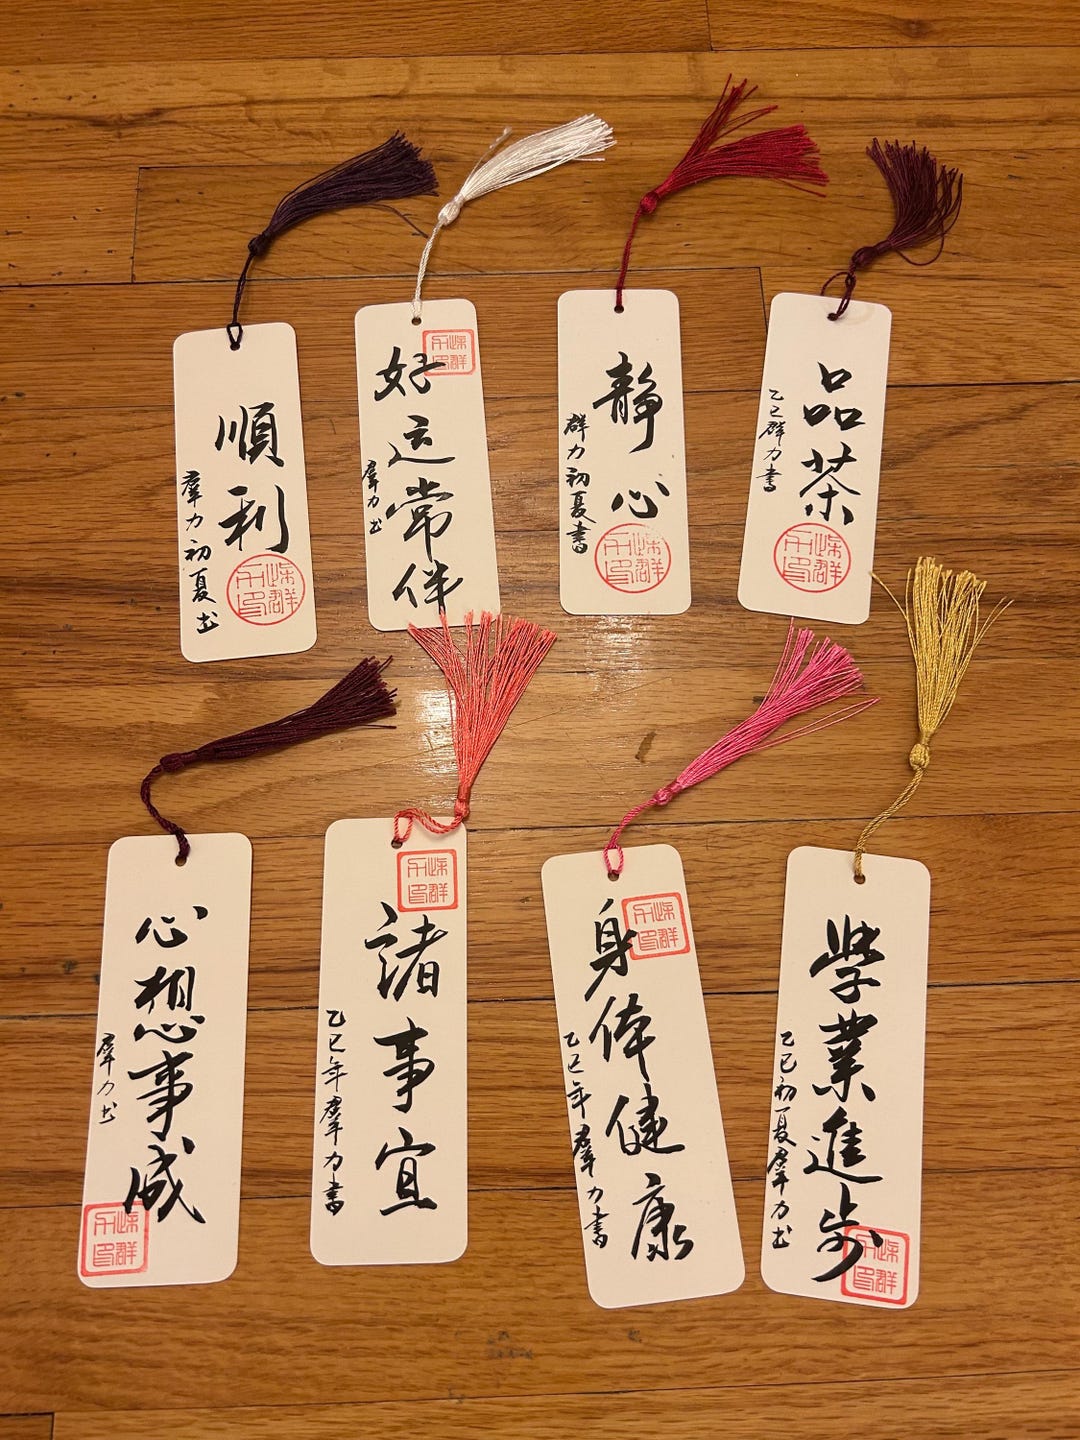 順利
羣力初夏书
好运常伴
羣力书
静心
群力初夏書
品茶
乙巳群力書
心想事成
羣力书
諸事宜
乙巳年羣力書
身体健康
乙巳年羣力書
學業進步
乙巳初夏羣力书